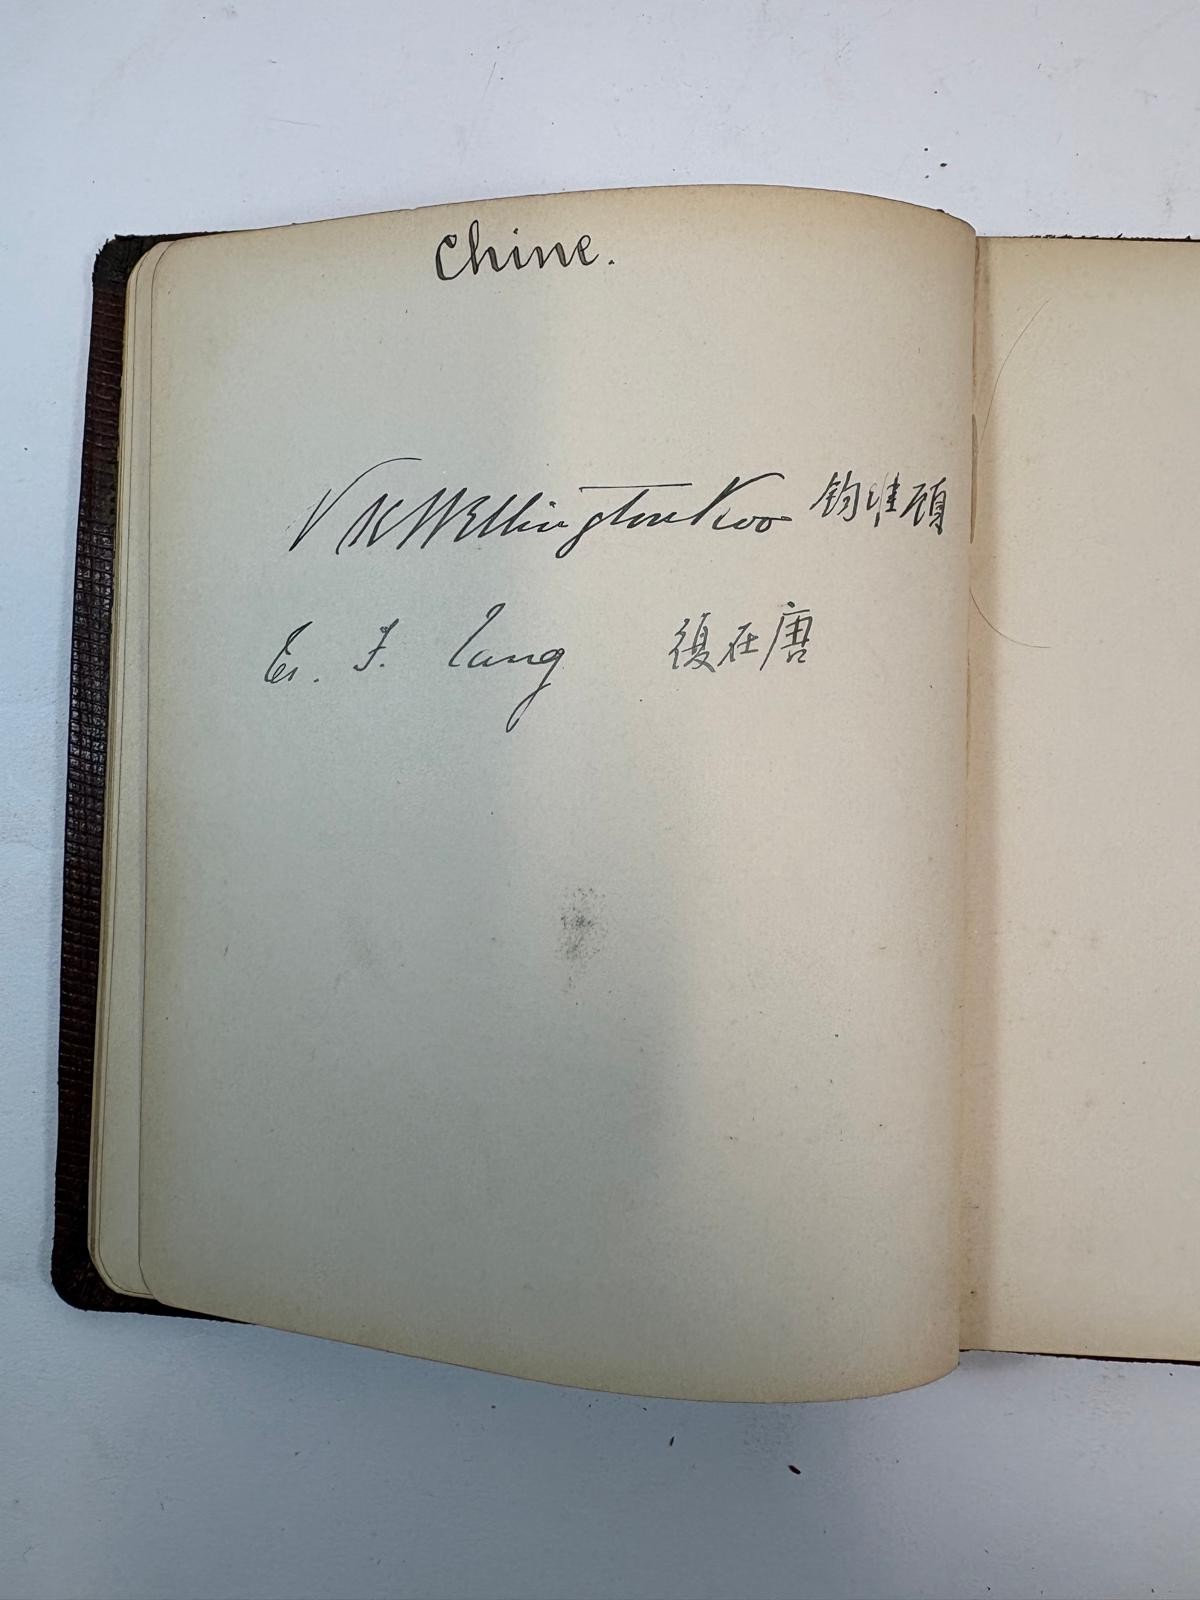 Chine.
V K Wellington Koo 鈞維顧
Ts. F. Tang 復在唐